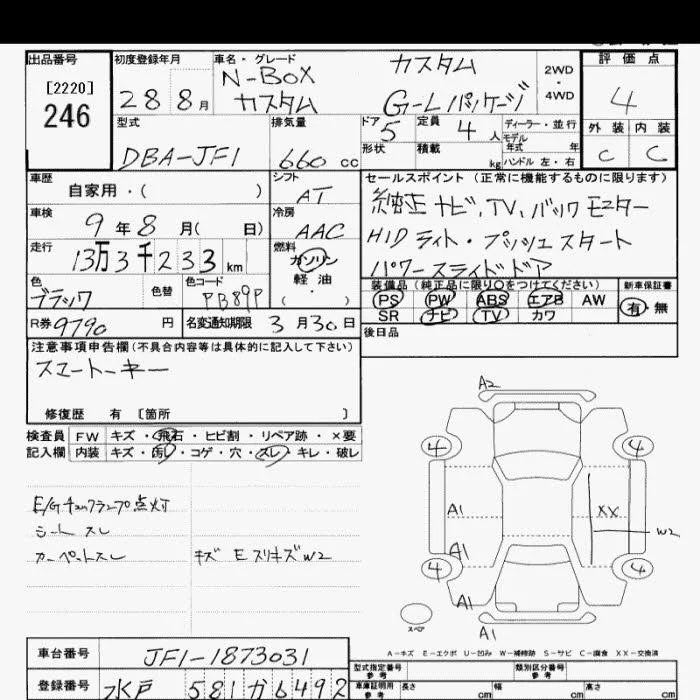 出品番号
[2220]
246
初度登録年月
28年 8月
車名・グレード
N-BOX カスタム
カスタム G-Lパッケージ
2WD
・
4WD
評価点
4
外装 内装
C C
型式
DBA-JF1
排気量
660 cc
ドア 5
定員 4人
形状
積載 kg
ディーラー・並行
モデル
年式 年
ハンドル 左・右
車歴
自家用・( )
シフト
AT
車検
9年8月( 日)
冷房
AAC
走行
13万3千233km
燃料
ガソリン
軽油
( ・ )
色
ブラック
色替
色コード
PB89P
R券 9790円
名変通知期限 3月30日
セールスポイント(正常に機能するものに限ります)
純正ナビ、TV、バックモニター
HIDライト・プッシュスタート
パワースライドドア
装備品(純正品に限り○をつけてください)
新車保証書
PS PW ABS エアB AW
SR ナビ TV カワ
有・無
後日品
注意事項申告欄(不具合内容等は具体的に記入して下さい)
スマートキー
修復歴 有 [箇所 ]
検査員
記入欄
FW キズ・飛石・ヒビ割・リペア跡・×要
内装 キズ・汚レ・コゲ・穴・スレ・キレ・破レ
E/Gチェックランプ点灯
シートスレ
カーペットスレ
キズ E スリキズ W2
A2
4 4
A1 XX W2
A1
4 4
A1
A1
スペア
A-キズ E-エクボ U-凹み W-補修跡 S-サビ C-腐食 XX-交換済
車台番号 JF1-1873031
登録番号 水戸 581 か 6492
型式指定番号
参考
類別区分番号
参考
車庫証明用
参考
長さ cm 幅 cm 高さ cm